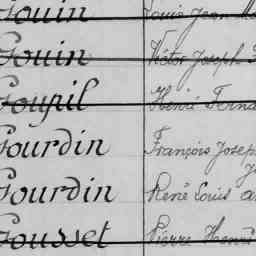 Gouin Louis Jean Ma
Gouin Victor Joseph
Goupil Henri Ferna
Gourdin François Josep
Gourdin René Louis a
Gousset Pierre Henri